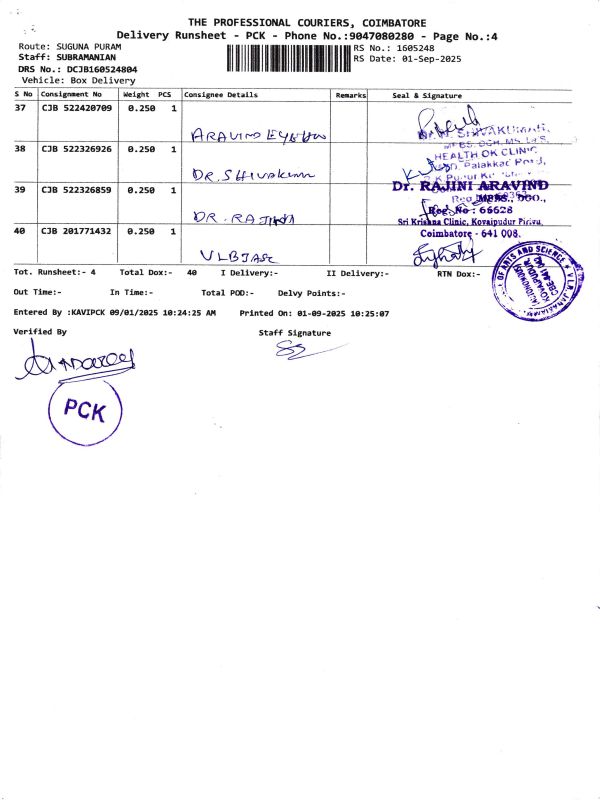 THE PROFESSIONAL COURIERS, COIMBATORE
Delivery Runsheet - PCK - Phone No.:9047080280 - Page No.:4
Route: SUGUNA PURAM
RS No.: 1605248
Staff: SUBRAMANIAN
RS Date: 01-Sep-2025
DRS No.: DCJB160524804
Vehicle: Box Delivery
S No Consignment No Weight PCS Consignee Details Remarks Seal & Signature
37 CJB 522420709 0.250 1
ARAVIND EYE
38 CJB 522326926 0.250 1
DR. SHIVAKUMAR
HEALTH OK CLINIC
Palakkad Road,
39 CJB 522326859 0.250 1
DR. RAJINI
Dr. RAJINI ARAVIND
MBBS., DGO.,
Reg. No : 66628
Sri Krishna Clinic, Kovaipudur Pirivu,
Coimbatore - 641 008.
40 CJB 201771432 0.250 1
VLBJASC
OF ARTS AND SCIENCE
Tot. Runsheet:- 4 Total Dox:- 40 I Delivery:- II Delivery:- RTN Dox:-
Out Time:- In Time:- Total POD:- Delvy Points:-
Entered By :KAVIPCK 09/01/2025 10:24:25 AM Printed On: 01-09-2025 10:25:07
Verified By Staff Signature
PCK